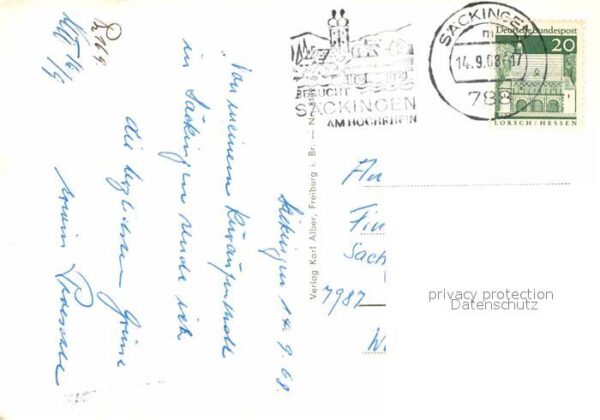 Säckingen 14.9.68.
Von meinem Kuraufenthalt
in Säckingen sende ich
die herzlichsten Grüsse
Verlag Karl Alber, Freiburg i. Br. — Nr.
BESUCHT
SÄCKINGEN
AM HOCHRHEIN
SÄCKINGEN
14.9.68-17
788
Deutsche Bundespost
20
LORSCH/HESSEN
An
Fin
Sack
7987
We
privacy protection
Datenschutz